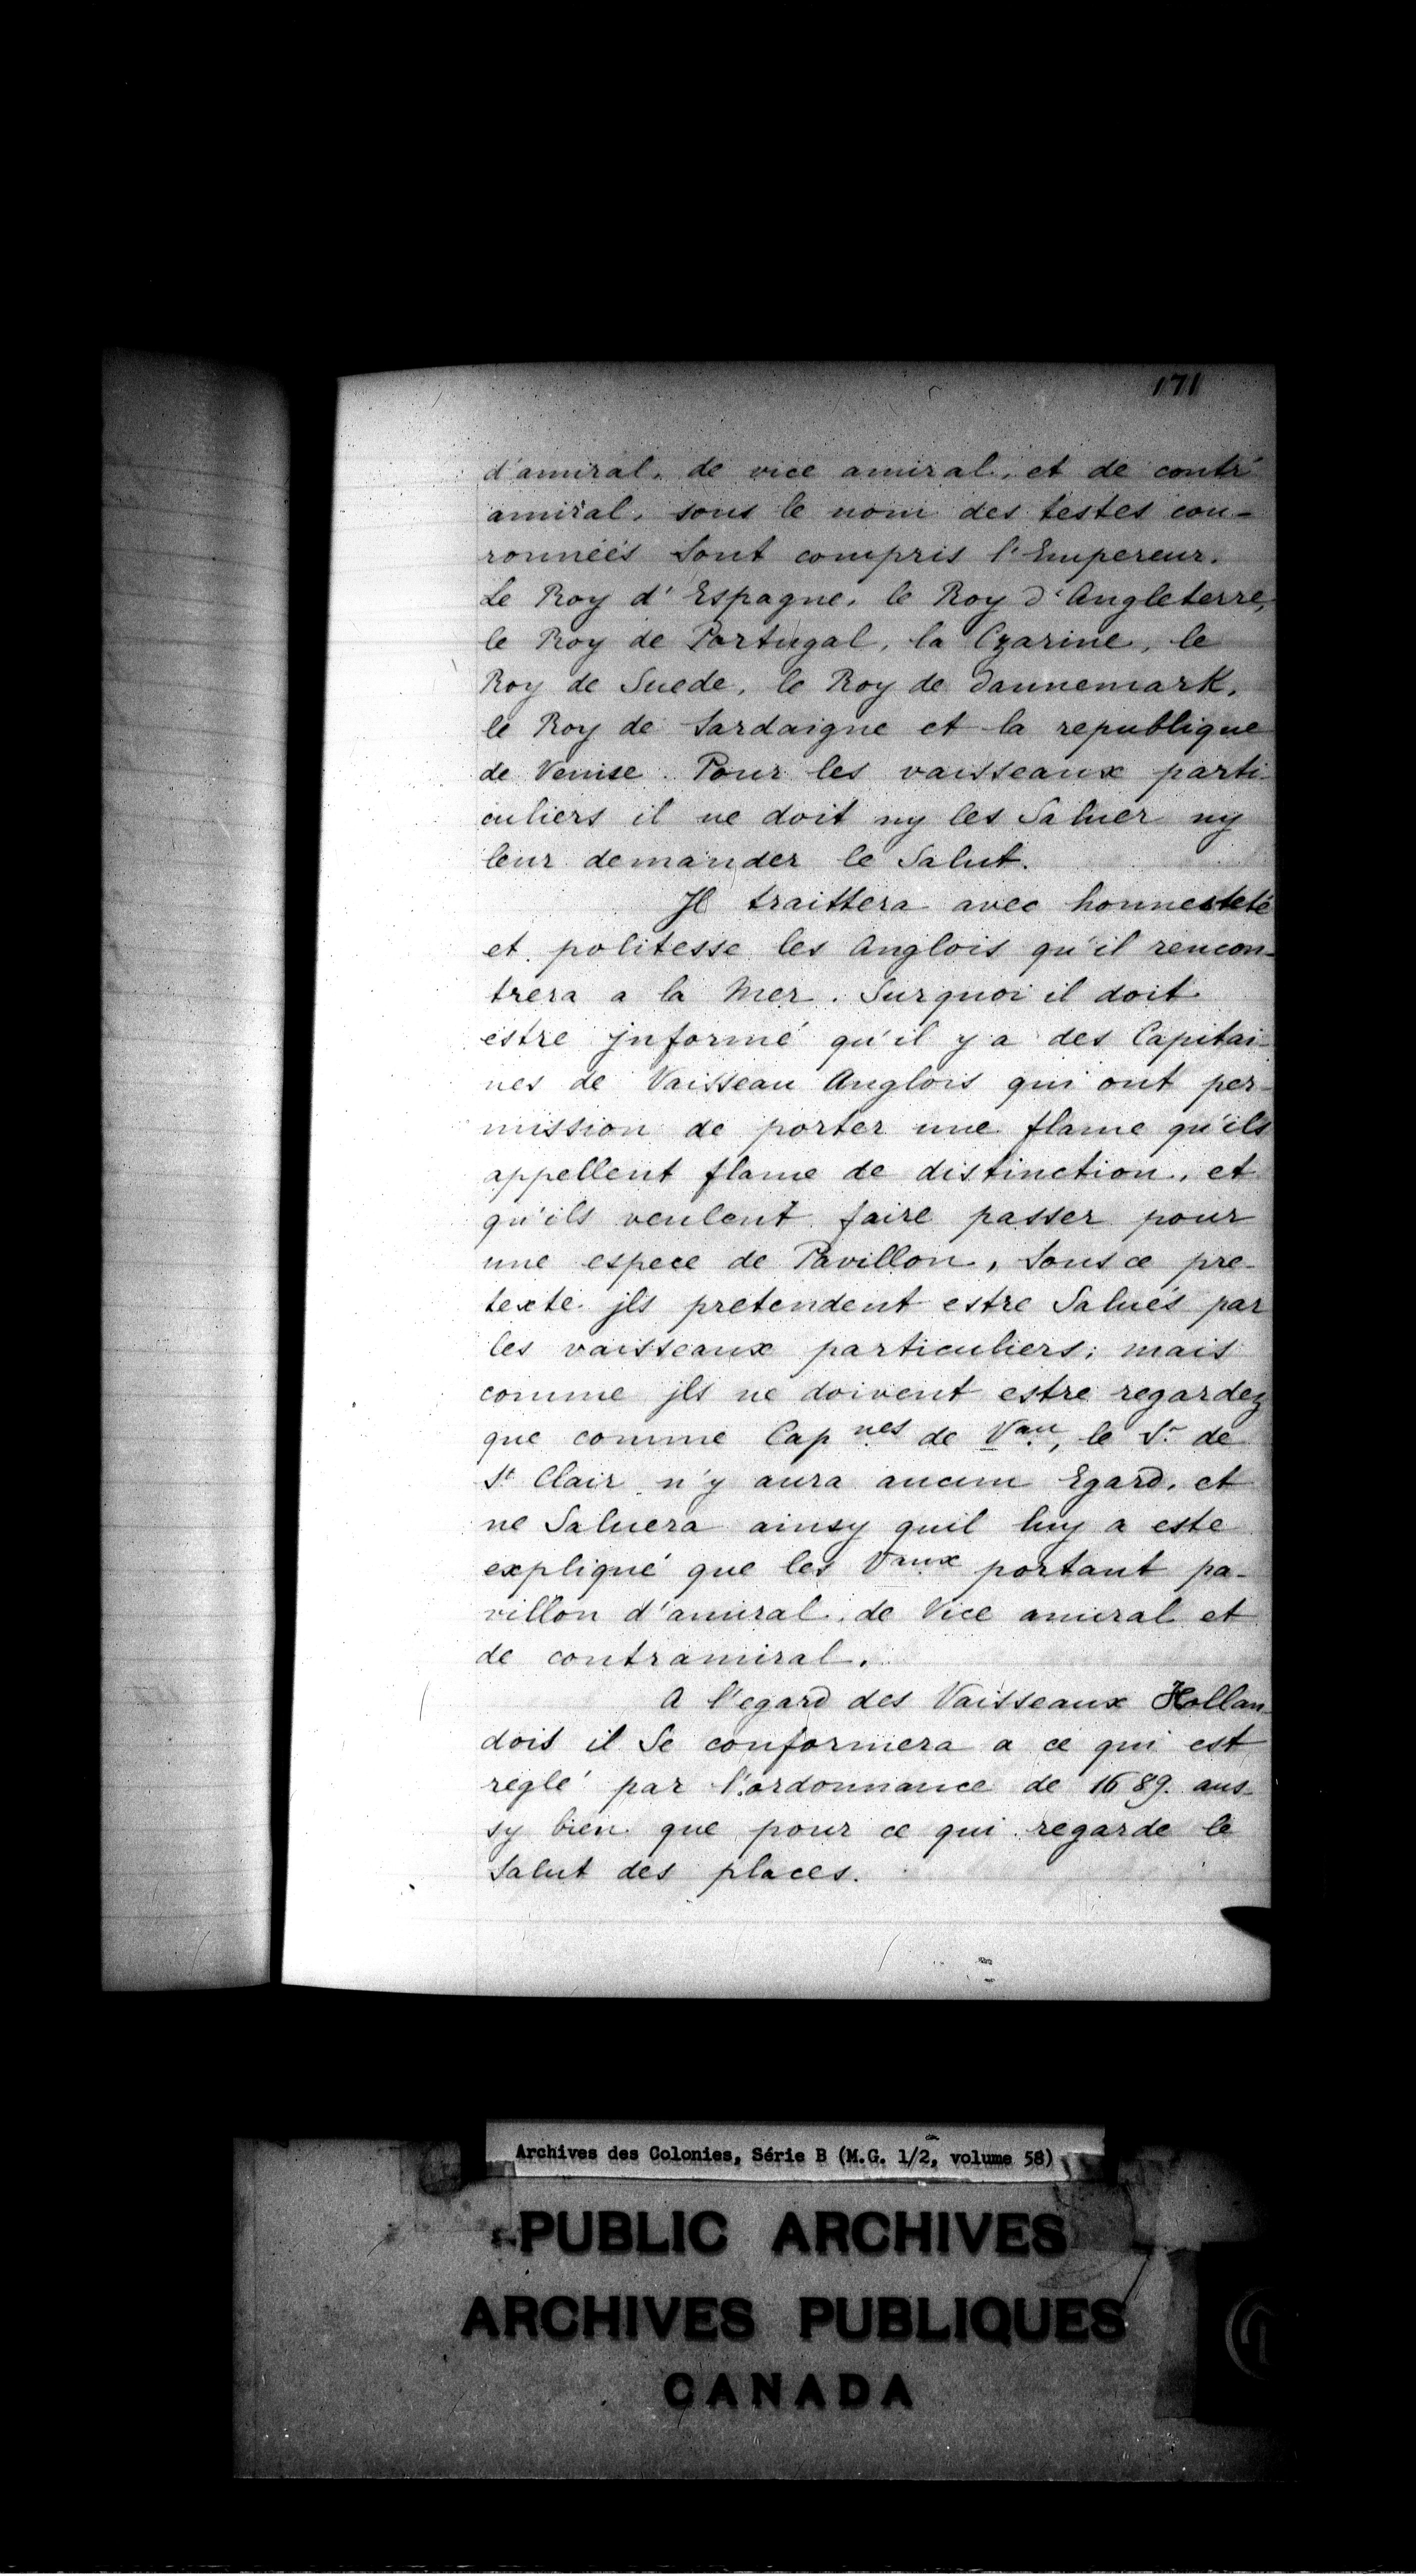 171
d'amiral, de vice amiral, et de contr'
amiral, sous le nom des testes cou-
ronnéés sont compris l'Empereur.
Le Roy d'Espagne, le Roy d'Angleterre,
le Roy de Portugal, la Czarine, le
Roy de Suede, le Roy de dannemark,
le Roy de Sardaigne et la republique
de Venise. Pour les vaisseaux parti-
culiers il ne doit ny les Saluer ny
leur demander le Salut.
Il traittera avec honnesteté
et politesse les Anglois qu'il rencon-
trera a la Mer. Surquoi il doit
estre jnformé qu'il y a des Capitai-
nes de Vaisseau Anglois qui ont per-
mission de porter une flame qu'ils
appellent flame de distinction, et
qu'ils veulent faire passer pour
une espece de Pavillon, Sous ce pre-
texte jls pretendent estre Salués par
les vaisseaux particuliers; mais
comme jls ne doivent estre regardez
que comme Cap.nes de V.au, le Sr de
St Clair n'y aura aucun Egard, et
ne Saluera ainsy quil luy a este
expliqué que les V.aux portant pa-
villon d'amiral, de Vice amiral et
de contramiral.
A l'egard des Vaisseaux Hollan-
dois il Se conformera a ce qui est
reglé par l'ordonnance de 1689. aus-
sy bien que pour ce qui regarde le
Salut des places.
Archives des Colonies, Série B (M.G. 1/2, volume 58)
PUBLIC ARCHIVES
ARCHIVES PUBLIQUES
CANADA